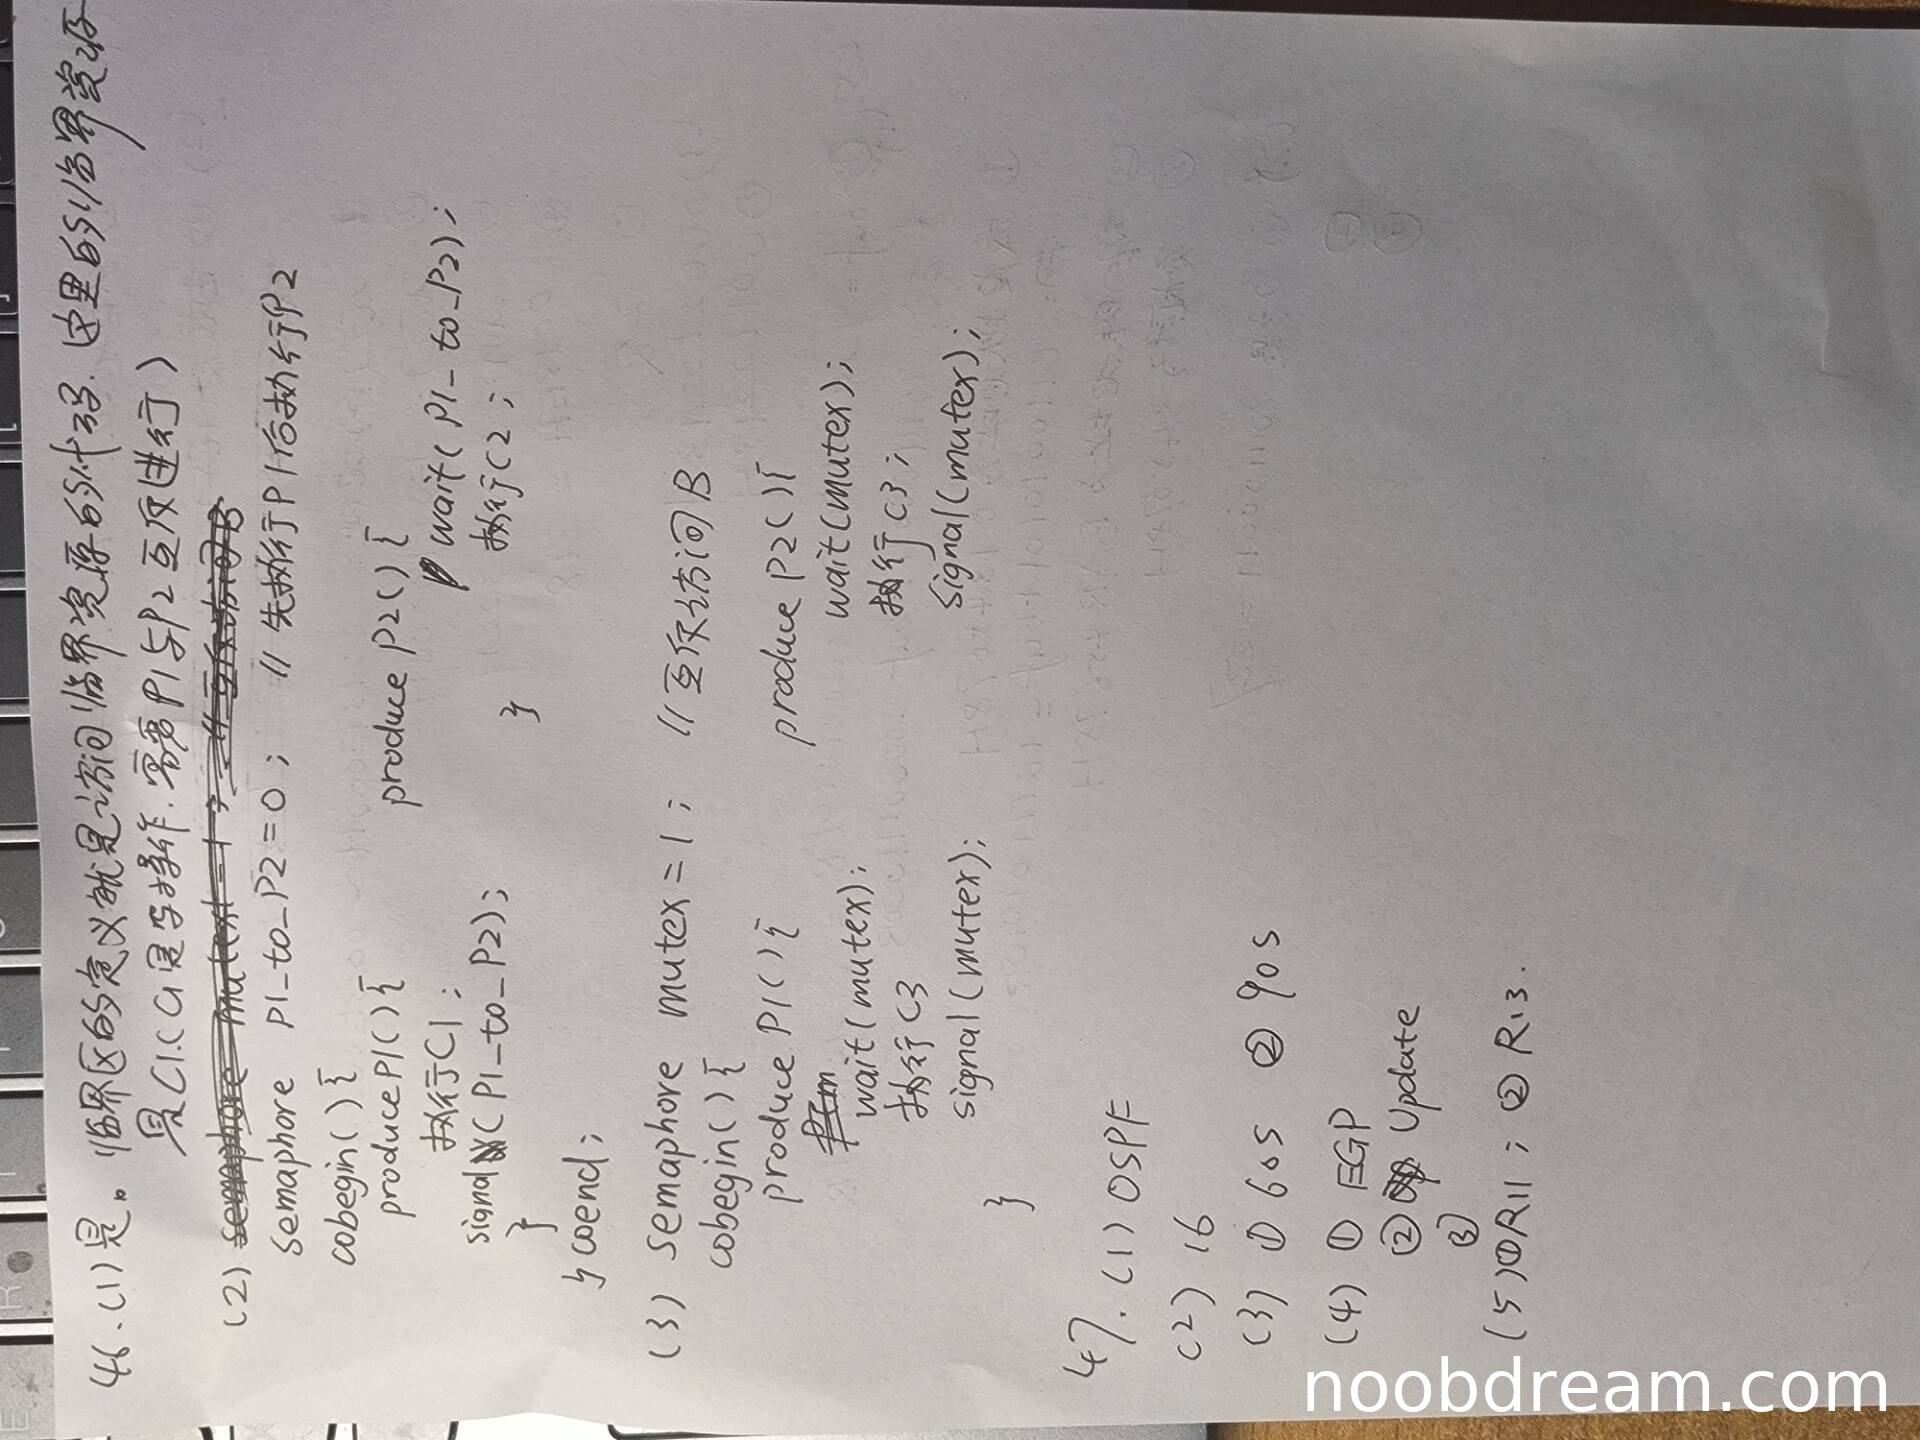 46.(1)是。临界区的定义就是访问临界资源的代码.这里的临界资源
是C1.(C1是写操作.需要P1与P2互斥进行)
(2)
semaphore P1_to_P2=0; //先执行P1后执行P2
cobegin(){
produce P1(){ produce P2(){
执行C1; wait(P1_to_P2);
signal(P1_to_P2); 执行C2;
} }
}coend;
(3) semaphore mutex=1; //互斥访问B
cobegin(){
produce P1(){ produce P2(){
wait(mutex); wait(mutex);
执行C3 执行C3;
signal(mutex); signal(mutex);
}
47.(1)OSPF
(2)16
(3)① 60s ② 90s
(4)① EGP
② Update
③
(5)①R11; ②R13.
noobdream.com